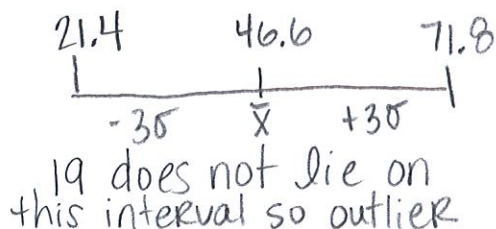 21.4 46.6 71.8
-3σ x̄ +3σ
19 does not lie on
this interval so outlier